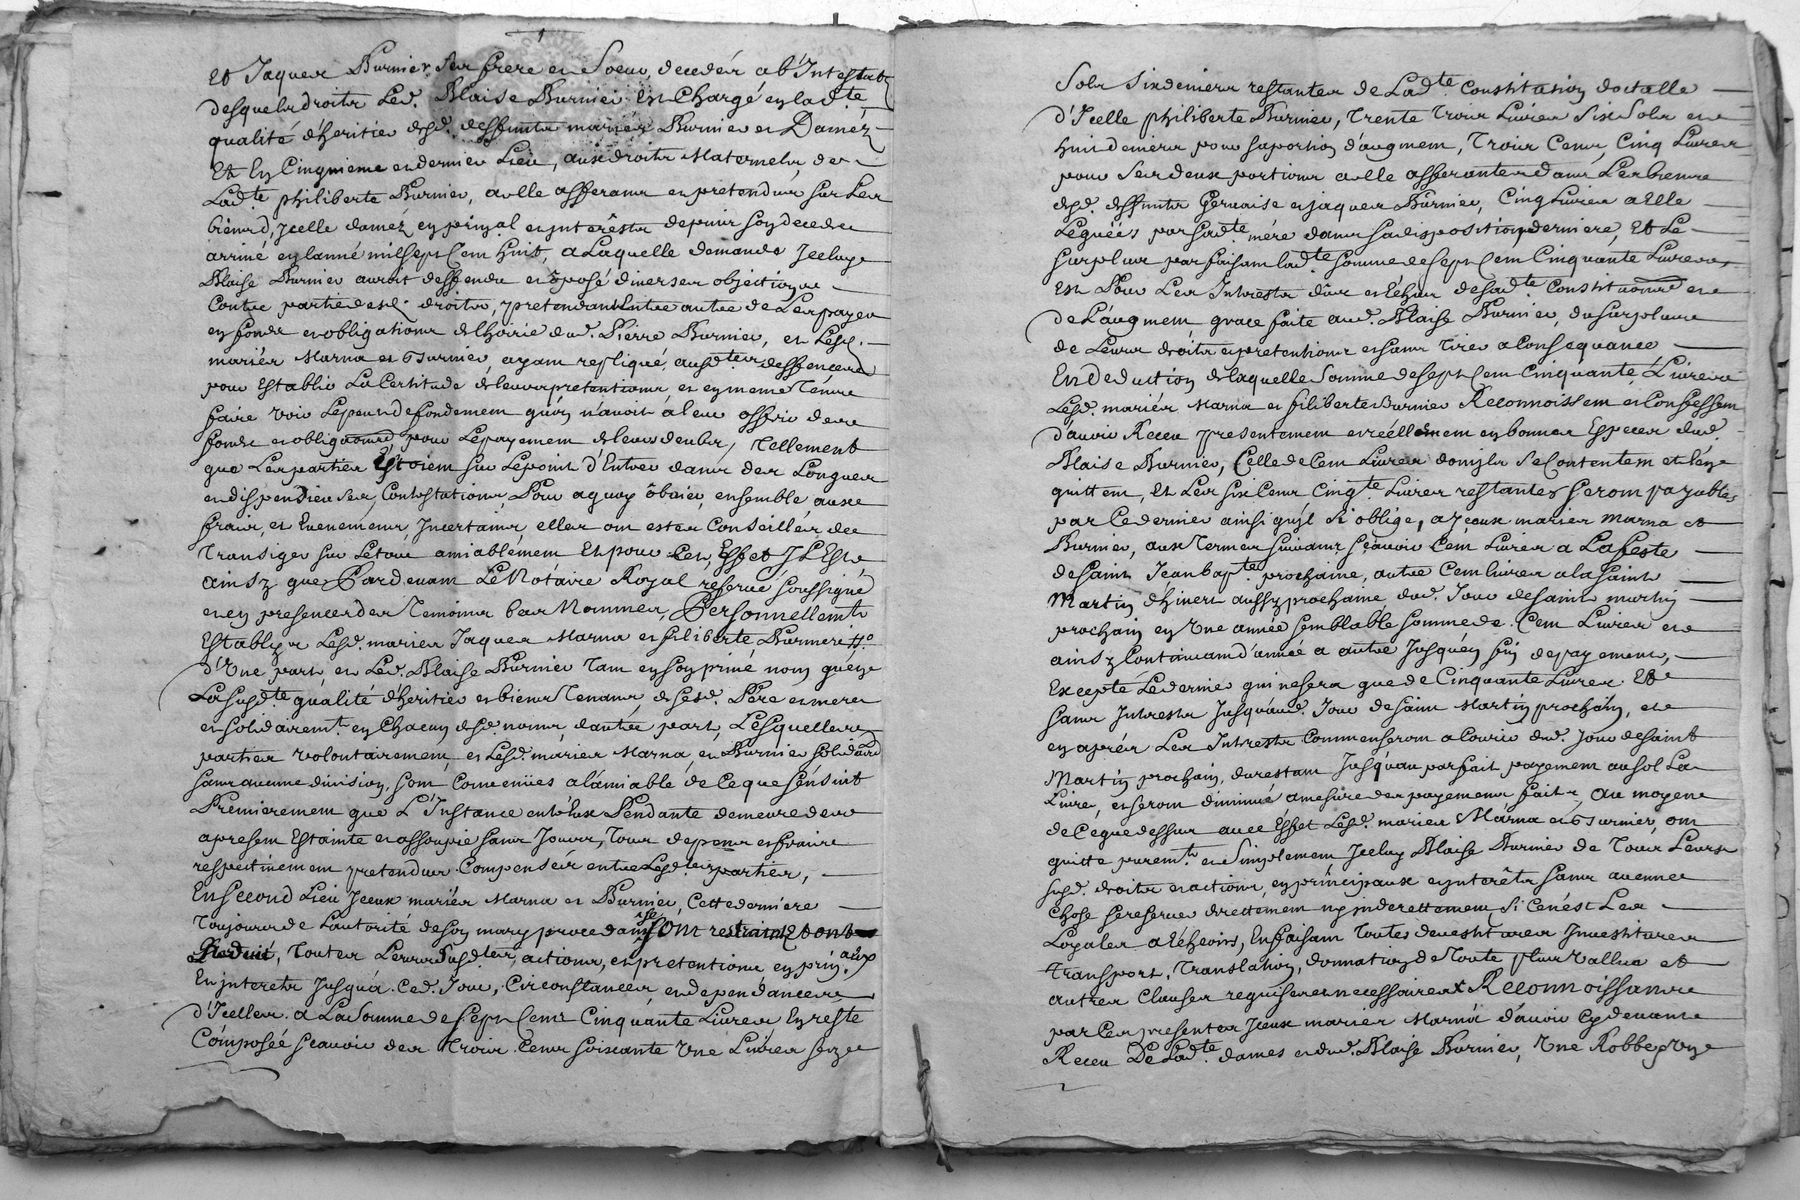 Et Jaques Burnier ses frere et Soeur, decedés ab Intestatz
desquels droits Led. Blaise Burnier Est Chargé en lad.te
qualité d'heritier desd. deffunts mariés Burnier et Daméz
Et En Cinquieme et dernier Lieu, aux droits Maternels, de
Lad.te philiberte Burnier, a elle afferants et pretendus sur Les
biens d'Jcelle daméz en prinpal et interêsts depuis son deces
arrivé en lanné mil sept Cent huit, a Laquelle demande Jceluy
Blaise Burnier auroit deffendu et oposé diverses objections
Contre partie desd. droits, pretendant Entre autre de Les payer
en fonds et obligations de l'hoirie dud. Pierre Burnier, et Lesd.
mariés Marna et Burnier, ayant repliqué ausd.tes deffences
pour Establir La Certitude de leurs pretentions, et en meme Tems
faire voir Le peu de fondement qu'on n'avoit a leur offrir des
fonds et obligations pour Le payement de leurs deubs, Tellement
que Les parties Estoient sur Le point d'Entrer dans des Longues
et dispendieuses Contestations Pour a quoy obvier, ensemble aux
fraix, et Evenements Jncertains, elles ont estes Conseillées de
Transiger sur Le tout amiablement Et pour Cet Effet JL Est
ainsy que Pardevant Le Notaire Royal reservé soussigné
et en presence des Temoins bas Nommés, Personnellem.t
Establys Lesd. mariés Jaques Marna et filiberte Burnier
d'Une part, et Led. Blaise Burnier Tant en son privé nom qu'en
La susd.te qualité d'heritier et biens Tenant de sesd. Pere et mere
et solidairem.t en Chacun desd. noms, d'autre part, Lesquelles
parties volontairement, et Lesd. mariés Marna, et Burnier solidaires
sans aucune division, sont Convenües a l'amiable de Ce que s'ensuit
Premierement que L'Instance entr'eux Pendante demeurera des
apresent Estainte et assoupie sans Jouvrir, Tous depens et fraix
respectivement pretendus Compensés entre Lesd.tes parties,
En second Lieu Jceux mariés Marna et Burnier, Cette derniere
Toujours de L'autorité de son mary procedant ont restraint et ont
Reduit, Toutes Leurs susd.tes actions, et pretentions en prin.aux
En jnterets Jusqu'a Ced. Jour, Circonstances, et dependances
d'Jcelles a La Somme de sept Cent Cinquante Livres En reste
Composée sçavoir des Trois Cent soixante Une Livres seize
Sols Six deniers restantes de Lad.te Constitution dotalle
d'Jcelle philiberte Burnier, Trente Trois Livres Six Sols et
huit deniers pour sa portion d'augment, Trois Cent, Cinq Livres
pour Ses deux portions a elle afferantes dans Les biens
desd. deffunts Gervaise et jaques Burnier, Cinq Livres a Elle
Leguées par sad.te mére dans sa disposition derniere, Et Le
surplus parfaisant lad.te somme de sept Cent Cinquante Livres
Est Pour Les Jntrests dûs et Echus de sad.te Constitution et
de L'augment grace faite aud. Blaise Burnier, du surplus
de Leurs droits et pretentions et sans Tirer a Consequance
En Deduction de laquelle Somme de sept Cent Cinquante Livres
Lesd. mariés Marna et filiberte Burnier Reconnoissent et Confessent
d'avoir Receu presentement et réellement en bonnes Especes dud.
Blaise Burnier, Celle de Cent Livres dont ils Se Contentent et l'en
quittent, Et Les six Cent Cinq.te Livres restantes seront payables
par Ce dernier ainsi qu'jl S'i oblige, a Jceux mariés Marna et
Burnier, aux Termes suivants sçavoir Cent Livres a La feste
de saint Jean bap.te prochaine, autre Cent livres a la saint
Martin d'hivert aussy prochaine dud. Jour de saint martin
prochain en Une année semblable somme de Cent Livres et
ainsy Continuant d'année a autre Jusqu'en fin de payement,
Excepté Le dernier qui ne sera que de Cinquante Livres Et
sans Jntrests Jusqu'aud. Jour de saint Martin prochain, et
en aprés Les Jntrests Commenseront a Courir dud. Jour de saint
Martin prochain, du restant Jusqu'au parfait payement au sol La
Livre, et seront diminué a mesure des payements faits, Au moyen
de Ce que dessus avec Effet Lesd. mariés Marna et Burnier, ont
quitté purem.t et Simplement Jceluy Blaise Burnier de Tous Leurs
susd. droits et actions, en principaux et jnterêts sans aucune
Chose se reserver directement ny indirettement Si Cen'est Les
Loyales a Echeoirs, En faisant Toutes devestitures Jnvestitures
Transport, Translation, donnation de Toute plus vallue et
autres Clauses requises et necessaires Reconnoissants
par Ces presentes Jceux mariés Marna d'avoir Cy devant
Receu De Lad.te dames et dud. Blaise Burnier, Une Robbe, Une